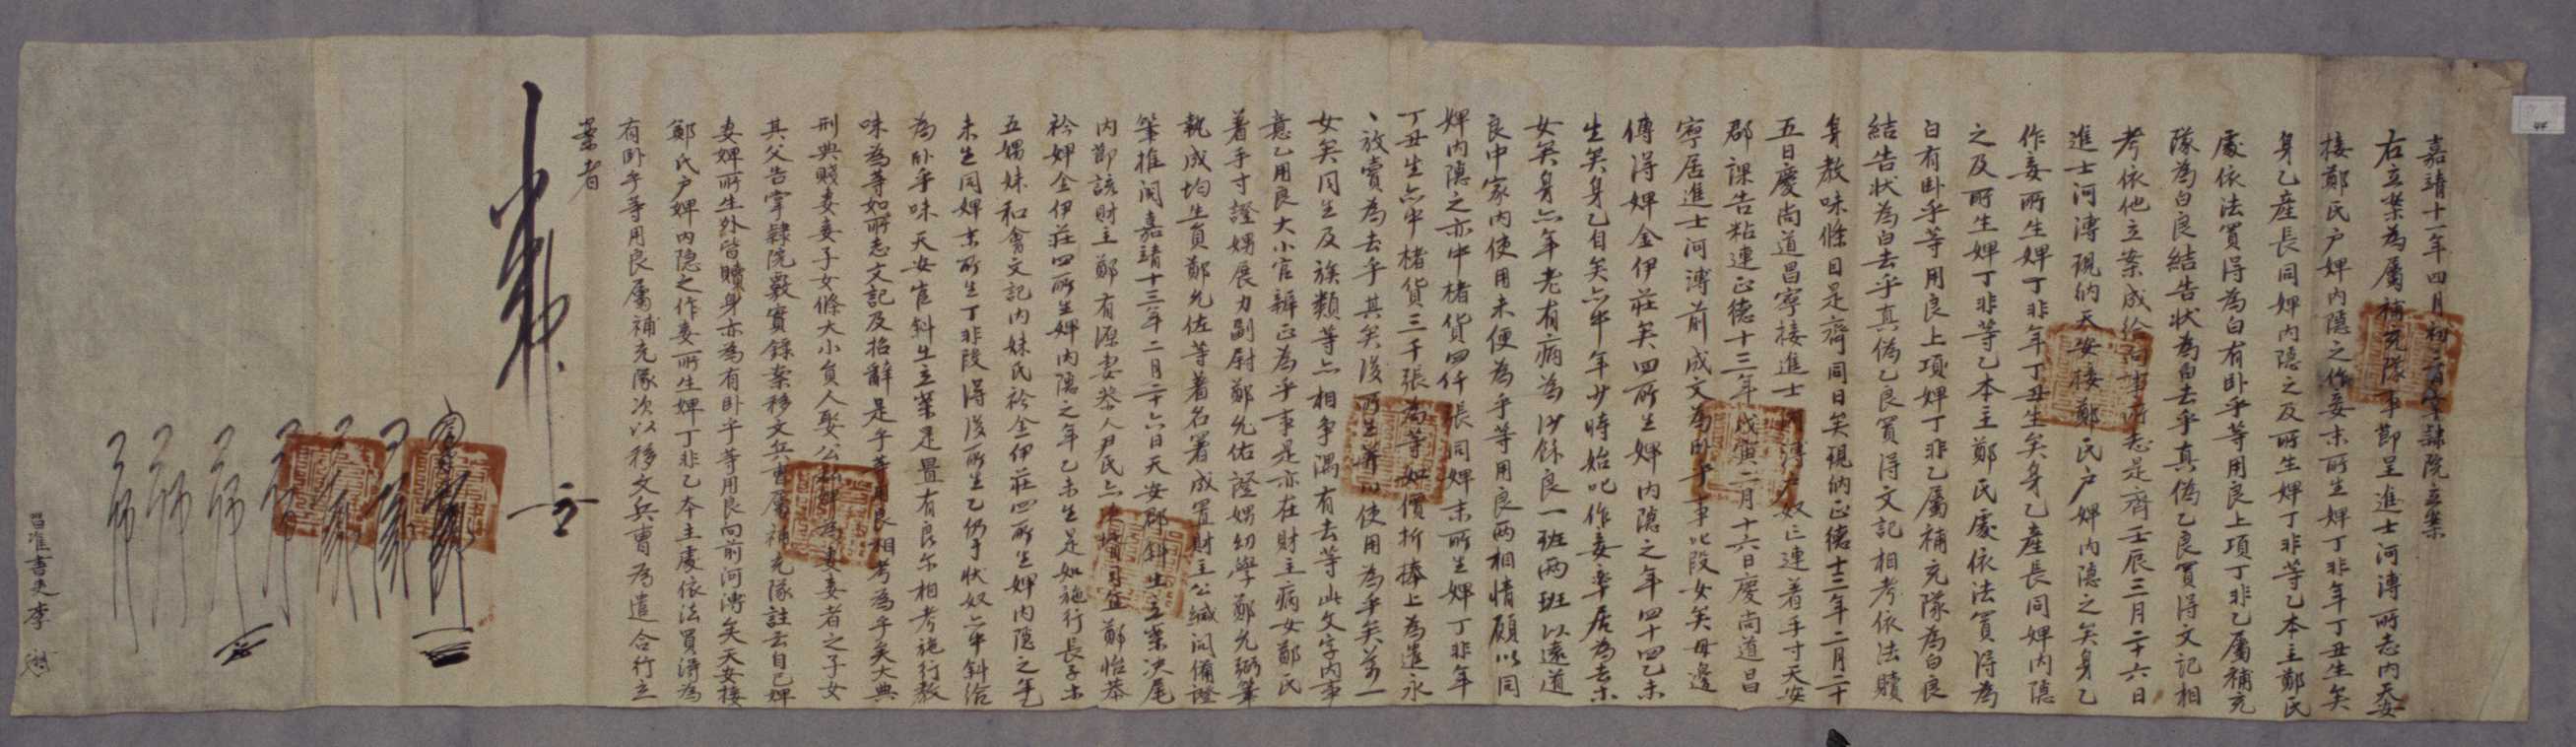 嘉靖十一年四月初二日掌隷院立案
右立案爲屬補充隊事節呈進士河溥所志內天安
接鄭氏戶婢內隱之作妾末所生婢丁非年丁丑生矣
身乙產長同婢內隱之及所生婢丁非等乙本主鄭氏
處依法買得爲白有卧乎等用良上項丁非乙屬補充
隊爲白良結告狀爲白去乎眞僞乙良買得文記相
考依他立案成給向事所志是齊壬辰三月二十六日
進士河溥現納天安接鄭氏戶婢內隱之矣身乙
作妾所生婢丁非年丁丑生矣身乙產長同婢內隱
之及所生婢丁非等乙本主鄭氏處依法買得爲
白有卧乎等用良上項婢丁非乙屬補充隊爲白良
結告狀爲白去乎眞僞乙良買得文記相考依法贖
身敎味條目是齊同日矣現納正德十三年二月二十
五日慶尙道昌寧接進士河溥戶奴亡連着手寸天安
郡課告粘連正德十三年戊寅二月十六日慶尙道昌
寧居進士河溥前成文爲卧乎事叱段女矣母邊
傳得婢金伊莊矣四所生婢內隱之年四十四乙未
生矣身乙自矣亦中年少時始叱作妾率居爲去乎
女矣身亦年老有病爲沙餘良一班兩班以遠道
良中家內使用未便爲乎等用良兩相情願以同
婢內隱之亦中楮貨四仟張同婢末所生婢丁非年
丁丑生亦中楮貨三千張爲等如價折捧上爲遣永
永放賣爲去乎其矣後所生幷以使用爲乎矣萬一
女矣同生及族類等亦相爭隅有去等此文字內事
意乙用良大小官辨正爲乎事是亦在財主病女鄭氏
着手寸證甥展力副尉鄭允佑證甥幼學鄭允弼筆
執成均生員鄭允佐等着名署成置財主公緘問備證
筆推問嘉靖十三年二月二十六日天安郡斜出立案決尾
內節該財主鄭有源妻恭人尹氏亦女壻司正鄭怡奉
衿婢金伊莊四所生婢內隱之年乙未生是如施行長子未
五娚妹和會文記內妹氏衿金伊莊四所生婢內隱之年乙
未生同婢末所生丁非段得後所生乙仍于狀奴亦中斜給
爲卧乎味天安官斜出立案是置有良尔相考施行敎
味爲等如所志文記及招辭是乎等用良相考爲乎矣大典
刑典賤妻妾子女條大小員人娶公私婢爲妻妾者之子女
其父告掌隷院覈實錄案移文兵曹屬補充隊註云自己婢
妻婢所生外皆贖身亦爲有卧乎等用良向前河溥矣天安接
鄭氏戶婢內隱之作妾所生婢丁非乙本主處依法買得爲
有卧乎等用良屬補充隊次以移文兵曹爲遣合行立
案者
立
昌准書吏李